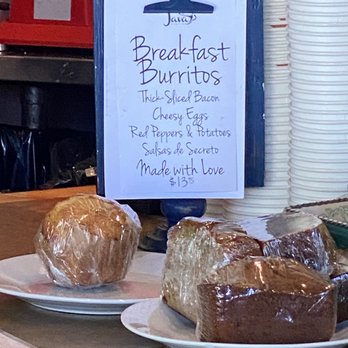 Java
Breakfast
Burritos
Thick-Sliced Bacon
Cheesy Eggs
Red Peppers & Potatoes
Salsas de Secreto
Made with Love
$13.75